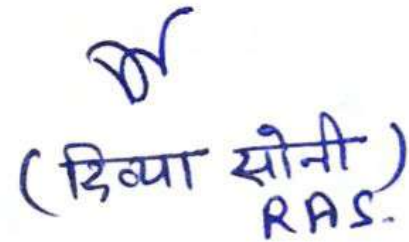 (दिव्या सोनी)
RAS.